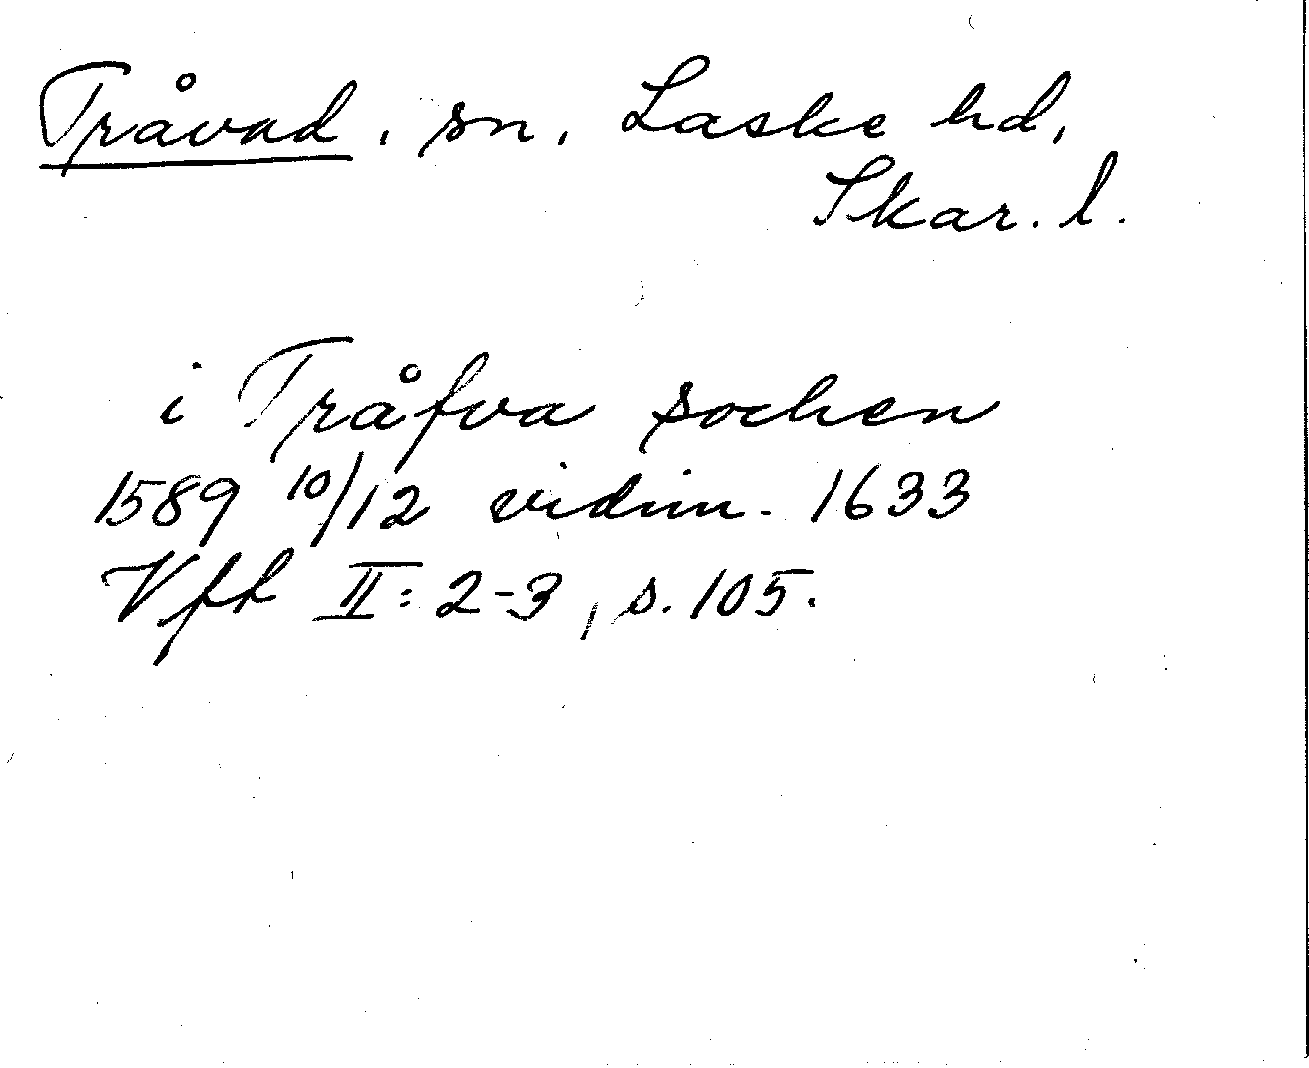 Tråvad, sn, Laske hd,
Skar. l.
i Tråfva sochen
1589 10/12 vidim. 1633
Vft II: 2-3, s. 105.